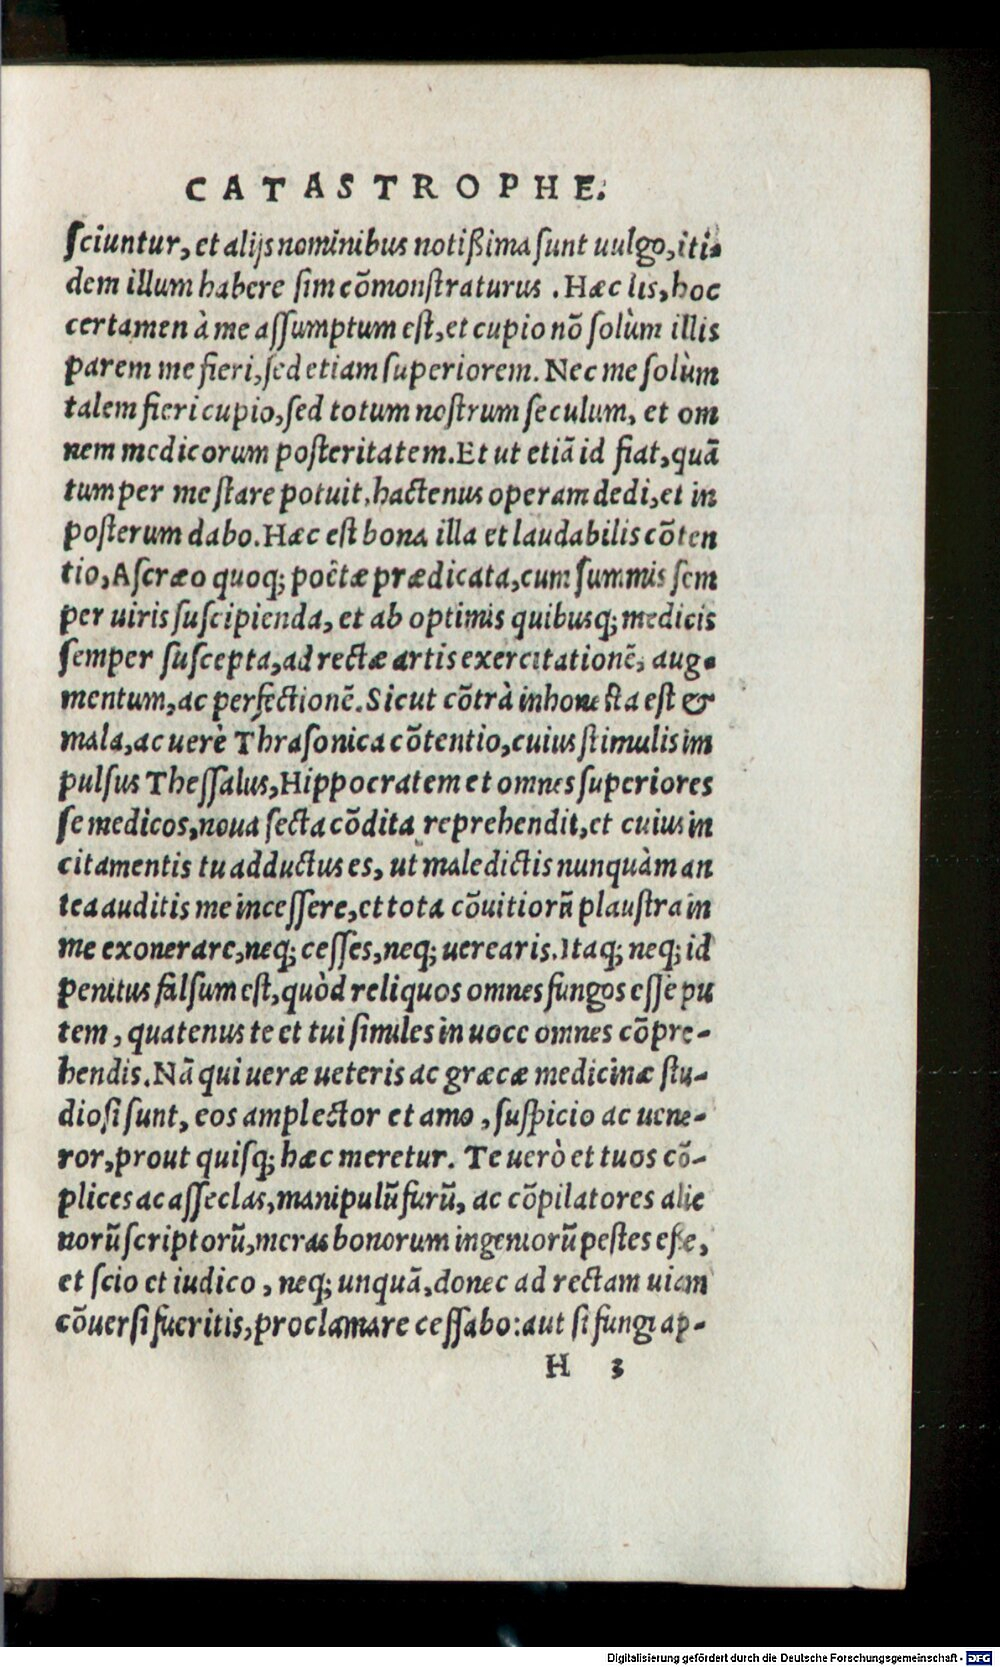 CATASTROPHE.
ſciuntur, et alijs nominibus notißima ſunt uulgo, iti-
dem illum habere ſim cõmonſtraturus . Hæc lis, hoc
certamen à me aſſumptum eſt, et cupio nõ ſolùm illis
parem me fieri, ſed etiam ſuperiorem. Nec me ſolùm
talem fieri cupio, ſed totum noſtrum ſeculum, et om
nem medicorum poſteritatem. Et ut etiã id fiat, quã
tum per me ſtare potuit, hactenus operam dedi, et in
poſterum dabo. Hæc eſt bona illa et laudabilis cõten
tio, Aſcræo quoq; poëtæ prædicata, cum ſummis ſem
per uiris ſuſcipienda, et ab optimis quibusq; medicis
ſemper ſuſcepta, ad rectæ artis exercitationẽ, aug-
mentum, ac perfectionẽ. Sicut cõtrà inhoneſta eſt &
mala, ac uerè Thraſonica cõtentio, cuius ſtimulis im
pulſus Theſſalus, Hippocratem et omnes ſuperiores
ſe medicos, noua ſecta cõdita reprehendit, et cuius in
citamentis tu adductus es, ut maledictis nunquàm an
tea auditis me inceſſere, et tota cõuitiorũ plauſtra in
me exonerare, neq; ceſſes, neq; uerearis. Itaq; neq; id
penitus falſum eſt, quòd reliquos omnes fungos eſſe pu
tem , quatenus te et tui ſimiles in uoce omnes cõpre-
hendis. Nã qui ueræ ueteris ac græcæ medicinæ ſtu-
dioſi ſunt, eos amplector et amo , ſuſpicio ac uene-
ror, prout quiſq; hæc meretur. Te uerò et tuos cõ-
plices ac aſſeclas, manipulũ furũ, ac cõpilatores alie
norũ ſcriptorũ, meras bonorum ingeniorũ peſtes eſſe,
et ſcio et iudico , neq; unquã, donec ad rectam uiam
cõuerſi fueritis, proclamare ceſſabo: aut ſi fungi ap-
H 3
Digitalisierung gefördert durch die Deutsche Forschungsgemeinschaft - DFG